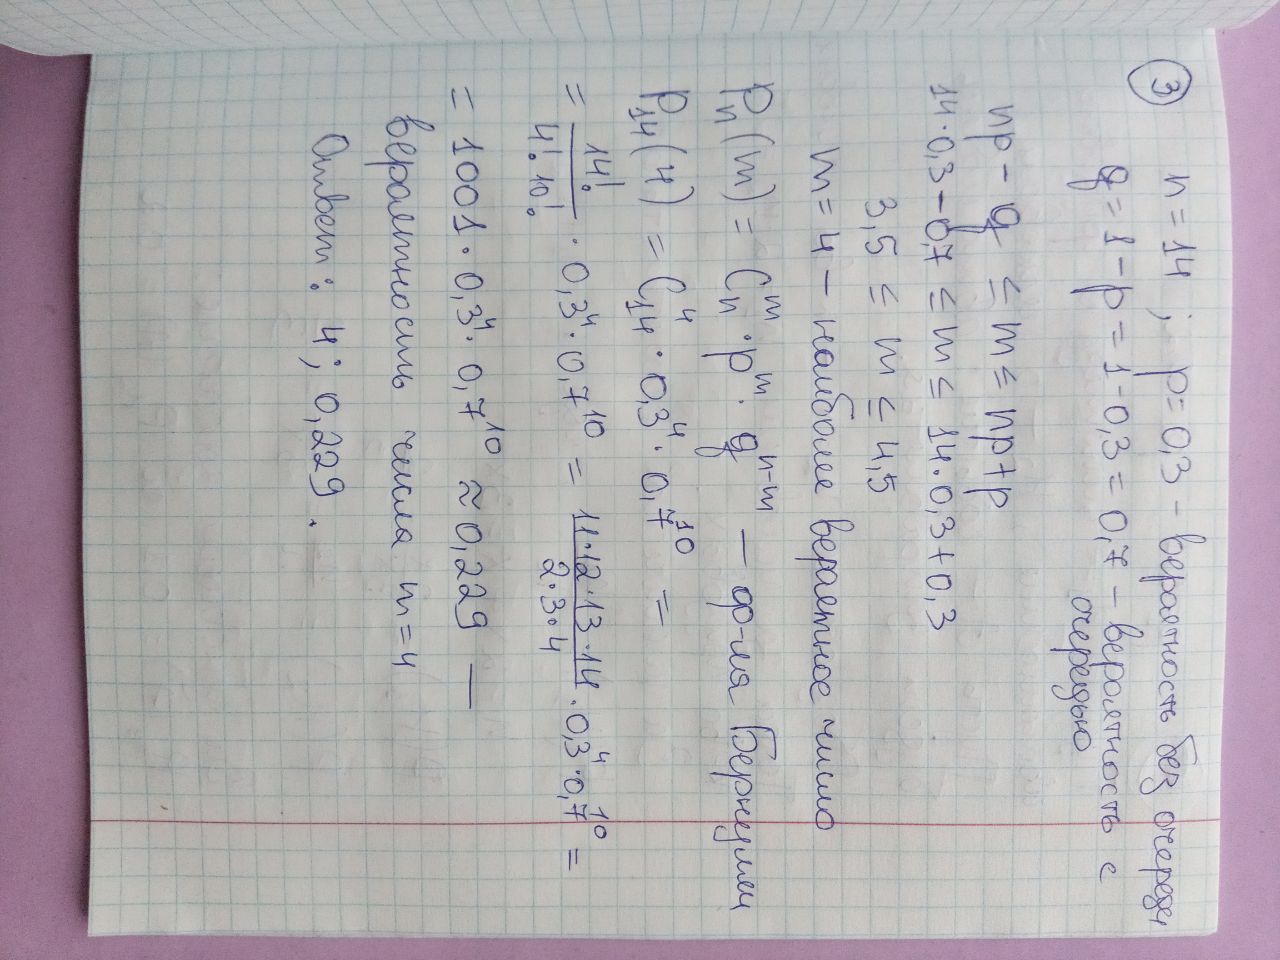 3 n = 14 ; p = 0,3 – вероятность без очереди
q = 1 – p = 1 – 0,3 = 0,7 – вероятность с
очередью
np – q ≤ m ≤ np + p
14·0,3 – 0,7 ≤ m ≤ 14·0,3 + 0,3
3,5 ≤ m ≤ 4,5
m = 4 – наиболее вероятное число
Pₙ(m) = Cₙᵐ · pᵐ · qⁿ⁻ᵐ – ф-ла Бернулли
P₁₄(4) = C₁₄⁴ · 0,3⁴ · 0,7¹⁰ =
= 14!/(4!·10!) · 0,3⁴ · 0,7¹⁰ = (11·12·13·14)/(2·3·4) · 0,3⁴ · 0,7¹⁰ =
= 1001 · 0,3⁴ · 0,7¹⁰ ≈ 0,229 –
вероятность числа m = 4
Ответ: 4; 0,229.